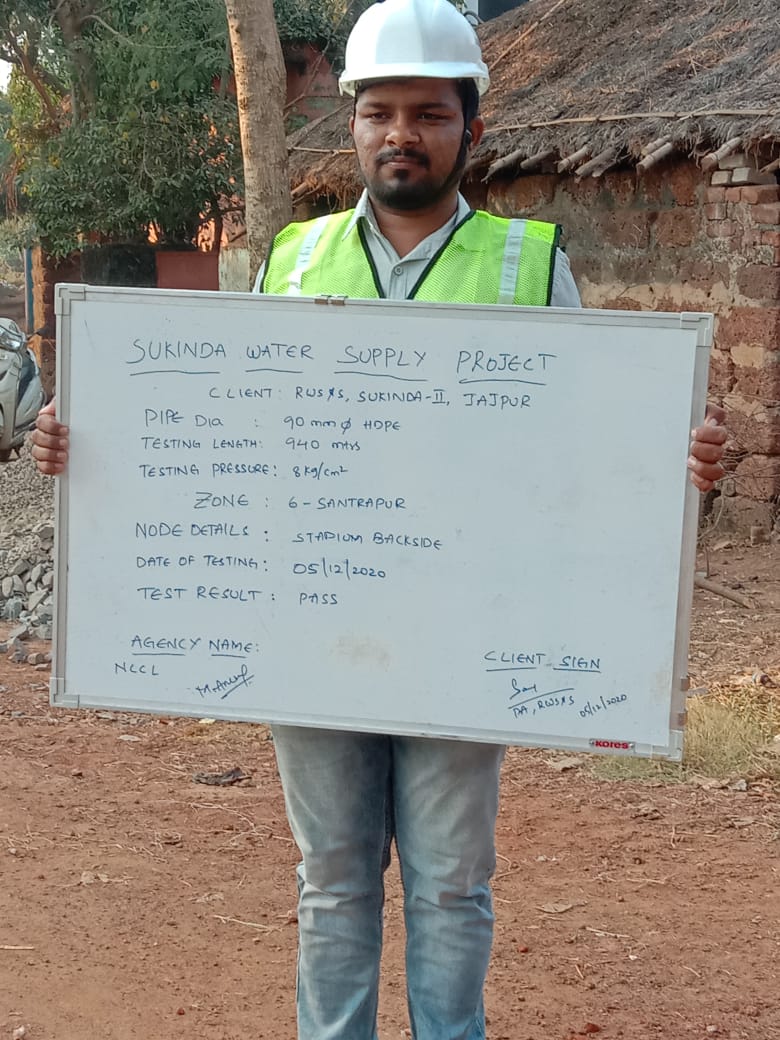 SUKINDA WATER SUPPLY PROJECT
CLIENT: RWS&S, SUKINDA-II, JAJPUR
PIPE DIA : 90 mm ϕ HDPE
TESTING LENGTH: 940 mtrs
TESTING PRESSURE: 8 kg/cm²
ZONE : 6 - SANTRAPUR
NODE DETAILS : STADIUM BACKSIDE
DATE OF TESTING: 05/12/2020
TEST RESULT : PASS
AGENCY NAME:
NCCL
CLIENT SIGN
DA, RWS&S 05/12/2020
KORES